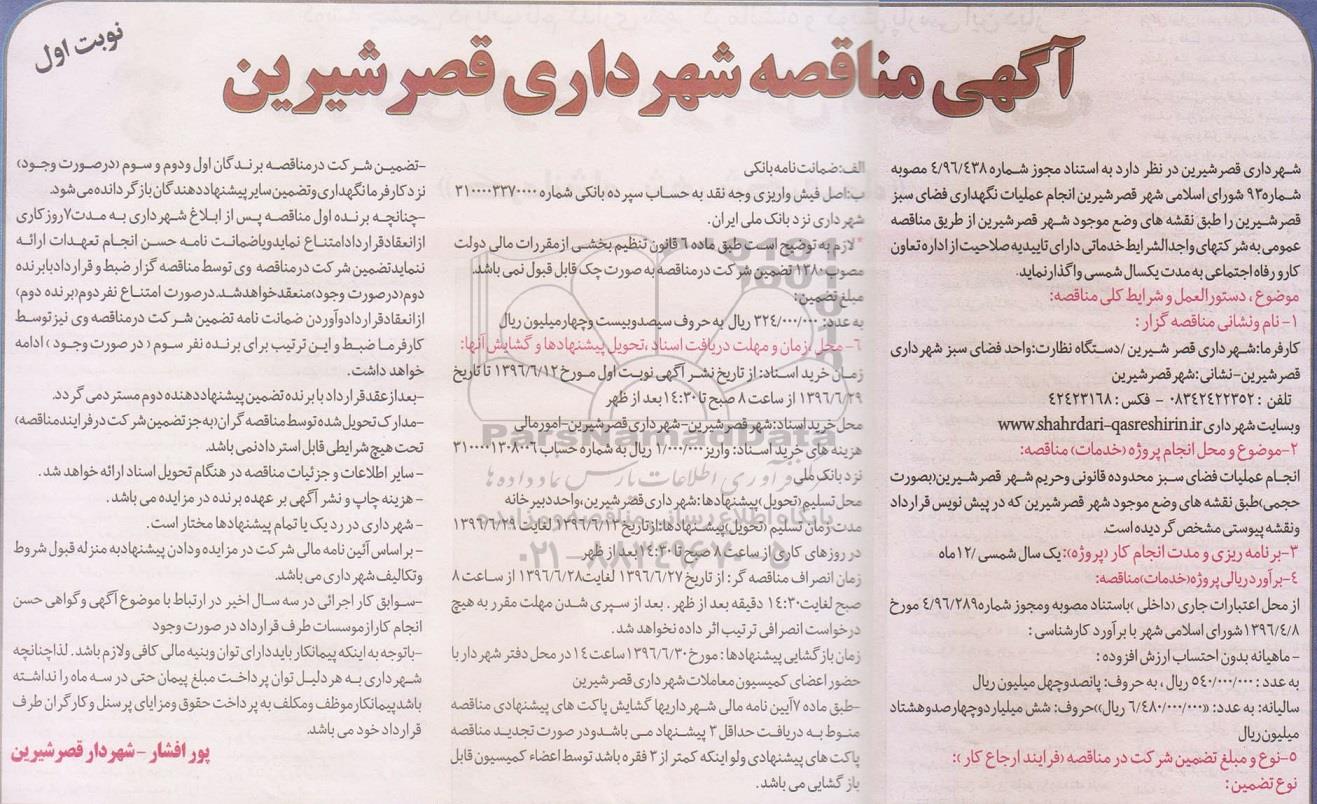 نوبت اول
آگهی مناقصه شهرداری قصرشیرین
شهرداری قصرشیرین در نظر دارد به استناد مجوز شماره ۴/۹۶/۴۳۸ مصوبه
شماره ۹۳ شورای اسلامی شهر قصرشیرین انجام عملیات نگهداری فضای سبز
قصرشیرین را طبق نقشه های وضع موجود شهر قصرشیرین از طریق مناقصه
عمومی به شرکتهای واجدالشرایط خدماتی دارای تاییدیه صلاحیت از اداره تعاون
کار و رفاه اجتماعی به مدت یکسال شمسی واگذار نماید.
موضوع ، دستورالعمل و شرایط کلی مناقصه:
۱- نام ونشانی مناقصه گزار :
کارفرما:شهرداری قصر شیرین /دستگاه نظارت:واحد فضای سبز شهرداری
قصرشیرین-نشانی:شهر قصرشیرین
تلفن : ۰۸۳۴۲۴۲۲۳۵۲ - فکس: ۴۲۴۲۳۱۶۸
وبسایت شهرداری www.shahrdari-qasreshirin.ir
۲-موضوع و محل انجام پروژه (خدمات) مناقصه:
انجام عملیات فضای سبز محدوده قانونی وحریم شهر قصرشیرین(بصورت
حجمی)طبق نقشه های وضع موجود شهر قصرشیرین که در پیش نویس قرارداد
ونقشه پیوستی مشخص گردیده است.
۳-برنامه ریزی و مدت انجام کار (پروژه): یک سال شمسی /۱۲ ماه
۴-برآورد ریالی پروژه(خدمات)مناقصه:
از محل اعتبارات جاری (داخلی )باستناد مصوبه ومجوز شماره ۴/۹۶/۲۸۹ مورخ
۱۳۹۶/۴/۸ شورای اسلامی شهر با برآورد کارشناسی :
- ماهیانه بدون احتساب ارزش افزوده :
به عدد : ۵۴۰/۰۰۰/۰۰۰ ریال ، به حروف: پانصدوچهل میلیون ریال
سالیانه: به عدد: «۶/۴۸۰/۰۰۰/۰۰۰ ریال»حروف: شش میلیاردوچهارصدوهشتاد
میلیون ریال
۵-نوع و مبلغ تضمین شرکت در مناقصه (فرایند ارجاع کار ):
نوع تضمین:
الف:ضمانت نامه بانکی
ب:اصل فیش واریزی وجه نقد به حساب سپرده بانکی شماره ۳۱۰۰۰۰۳۳۷۰۰۰۰
شهرداری نزد بانک ملی ایران.
*لازم به توضیح است طبق ماده ۶ قانون تنظیم بخشی از مقررات مالی دولت
مصوب ۱۳۸۰ تضمین شرکت در مناقصه به صورت چک قابل قبول نمی باشد.
مبلغ تضمین:
به عدد: ۳۲۴/۰۰۰/۰۰۰ ریال به حروف سیصدوبیست وچهارمیلیون ریال
۶-محل ،زمان و مهلت دریافت اسناد ،تحویل پیشنهادها و گشایش آنها:
زمان خرید اسناد: از تاریخ نشر آگهی نوبت اول مورخ ۱۳۹۶/۶/۱۲ تا تاریخ
۱۳۹۶/۶/۲۹ از ساعت ۸ صبح تا ۱۴:۳۰ بعد از ظهر
محل خرید اسناد:شهر قصرشیرین-شهرداری قصرشیرین-امورمالی
هزینه های خرید اسناد: واریز ۱/۰۰۰/۰۰۰ ریال به شماره حساب ۳۱۰۰۰۰۱۳۰۸۰۰۶
نزد بانک ملی
محل تسلیم (تحویل)پیشنهادها:شهرداری قصرشیرین،واحد دبیرخانه
مدت زمان تسلیم (تحویل)پیشنهادها:ازتاریخ ۱۳۹۶/۶/۱۲ لغایت ۱۳۹۶/۶/۲۹
در روزهای کاری از ساعت ۸ صبح تا ۱۴:۳۰ بعد از ظهر
زمان انصراف مناقصه گر: از تاریخ ۱۳۹۶/۶/۲۷ لغایت ۱۳۹۶/۶/۲۸ از ساعت ۸
صبح لغایت ۱۴:۳۰ دقیقه بعد از ظهر . بعد از سپری شدن مهلت مقرر به هیچ
درخواست انصرافی ترتیب اثر داده نخواهد شد.
زمان بازگشایی پیشنهادها : مورخ ۱۳۹۶/۶/۳۰ ساعت ۱۴ در محل دفتر شهردار با
حضور اعضای کمیسیون معاملات شهرداری قصرشیرین
-طبق ماده ۷ آیین نامه مالی شهرداریها گشایش پاکت های پیشنهادی مناقصه
منوط به دریافت حداقل ۳ پیشنهاد می باشدودر صورت تجدید مناقصه
پاکت های پیشنهادی ولو اینکه کمتر از ۳ فقره باشد توسط اعضاء کمیسیون قابل
بازگشایی می باشد.
-تضمین شرکت در مناقصه برندگان اول ودوم و سوم (درصورت وجود)
نزد کارفرما نگهداری وتضمین سایر پیشنهاددهندگان بازگردانده می شود.
-چنانچه برنده اول مناقصه پس از ابلاغ شهرداری به مدت ۷ روز کاری
از انعقاد قرارداد امتناع نماید ویا ضمانت نامه حسن انجام تعهدات ارائه
ننماید تضمین شرکت در مناقصه وی توسط مناقصه گزار ضبط و قرارداد با برنده
دوم(درصورت وجود)منعقدخواهدشد.درصورت امتناع نفردوم(برنده دوم)
از انعقاد قرارداد وآوردن ضمانت نامه تضمین شرکت در مناقصه وی نیز توسط
کارفرما ضبط و این ترتیب برای برنده نفر سوم ( در صورت وجود ) ادامه
خواهد داشت.
-بعد از عقد قرارداد با برنده تضمین پیشنهاددهنده دوم مستردمی گردد.
-مدارک تحویل شده توسط مناقصه گران(به جز تضمین شرکت در فرایند مناقصه)
تحت هیچ شرایطی قابل استردادنمی باشد.
- سایر اطلاعات و جزئیات مناقصه در هنگام تحویل اسناد ارائه خواهد شد.
- هزینه چاپ و نشر آگهی بر عهده برنده در مزایده می باشد.
- شهرداری در رد یک یا تمام پیشنهادها مختار است.
- براساس آئین نامه مالی شرکت در مزایده ودادن پیشنهادبه منزله قبول شروط
وتکالیف شهرداری می باشد.
-سوابق کار اجرائی در سه سال اخیر در ارتباط با موضوع آگهی و گواهی حسن
انجام کاراز موسسات طرف قرارداد در صورت وجود
-باتوجه به اینکه پیمانکار باید دارای توان وبنیه مالی کافی ولازم باشد . لذا چنانچه
شهرداری به هر دلیل توان پرداخت مبلغ پیمان حتی در سه ماه را نداشته
باشد پیمانکار موظف ومکلف به پرداخت حقوق ومزایای پرسنل و کارگران طرف
قرارداد خود می باشد.
پورافشار -شهردار قصرشیرین
ParsNamadData
فرآوری اطلاعات پارس نماد داده ها
پایگاه اطلاع رسانی مناقصه و مزایده
۰۲۱-۸۸۳۴۹۶۷۰-۵